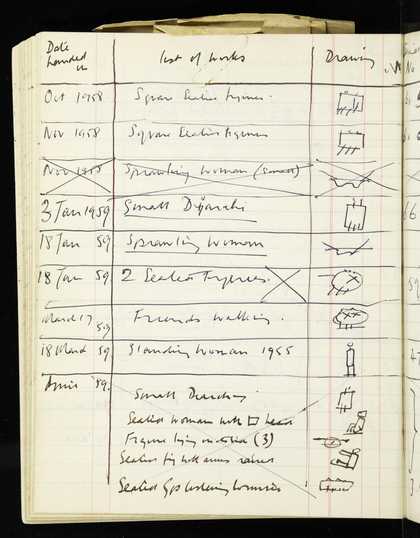 Date handed in List of Works Drawing No
Oct 1958 Square Seated Figures.
Nov 1958 Square Seated Figures
Nov 1958 Sprawling Woman (small)
3 Jan 1959 Small
18 Jan 59 Sprawling Woman
18 Jan 59 2 Seated Figures.
March 17 59 Friends walking.
18 March 59 Standing Woman 1955
59. Small
Seated Woman with □ head
Figure lying on (3)
Seated fig with arms raised
Seated listening to music